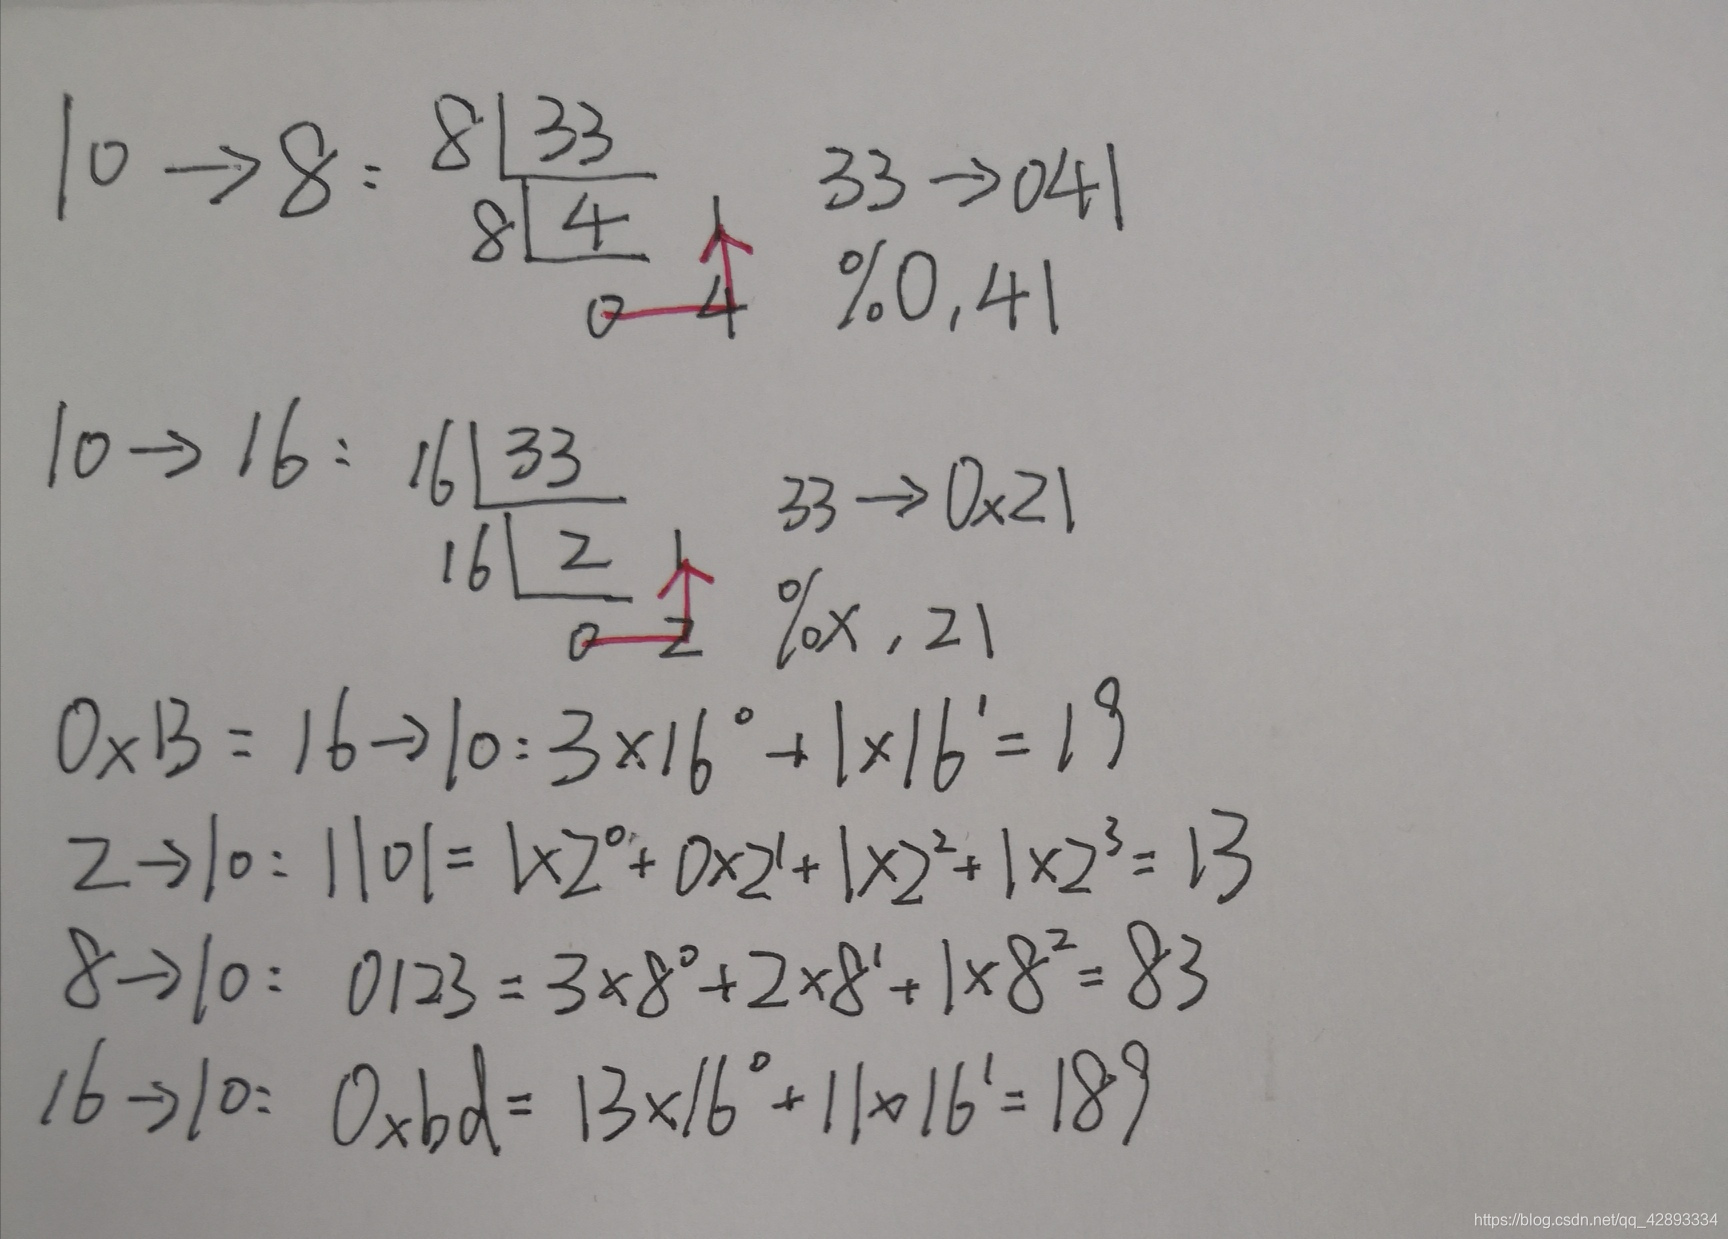 10→8: 8 33
8 4 1
0 4
33→041
%0,41
10→16: 16 33
16 2 1
0 2
33→0x21
%x,21
0x13 = 16→10: 3×16⁰ + 1×16¹ = 19
2→10: 1101 = 1×2⁰ + 0×2¹ + 1×2² + 1×2³ = 13
8→10: 0123 = 3×8⁰ + 2×8¹ + 1×8² = 83
16→10: 0xbd = 13×16⁰ + 11×16¹ = 189
https://blog.csdn.net/qq_42893334